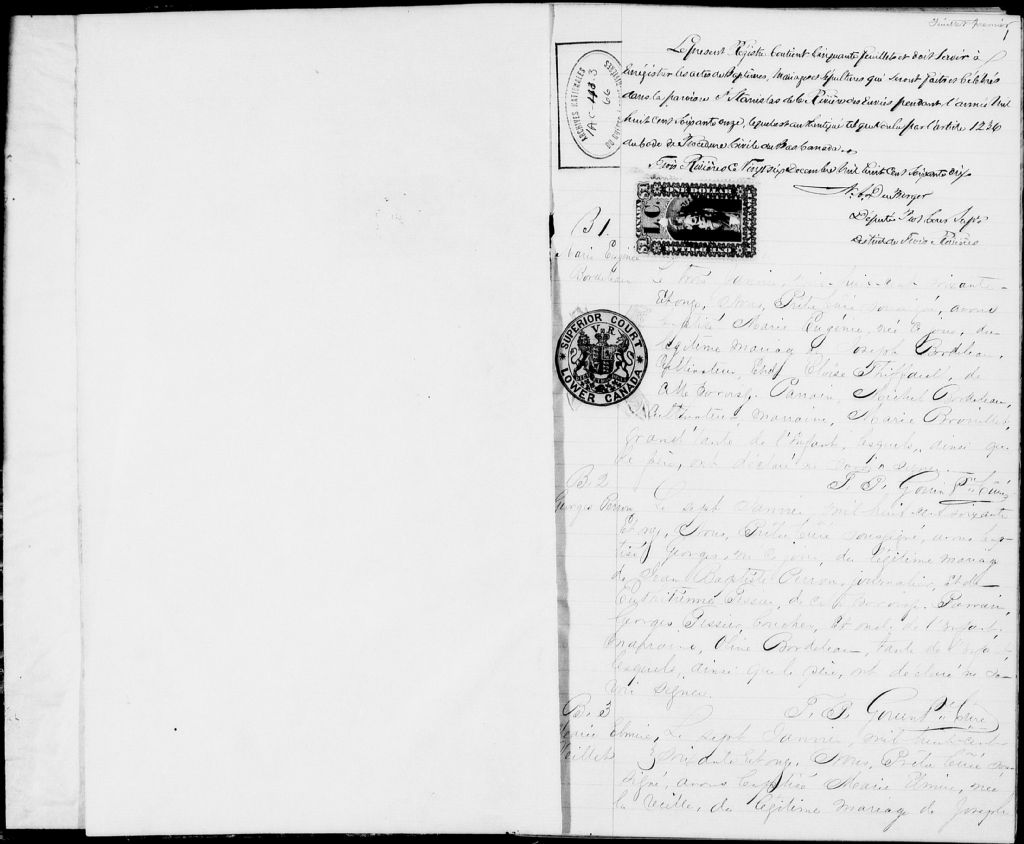 feuillet premier
1
Le présent Registre contient Cinquante feuillets et doit servir à
Enregistrer les actes de Baptêmes, Mariages et Sépultures qui seront faits et célébrés
dans la paroisse St Stanislas de la Rivière des Envies pendant l'année Mil
huit cent soixante onze, lequel est authentiqué tel que voulu par l'article 1236
du Code de Procédure Civile du Bas Canada.
Trois Rivières Ce Vingt sept Décembre Mil huit Cent Soixante dix
Député Prot Cour Sup.
District de Trois Rivières
ARCHIVES NATIONALES
DU QUÉBEC
1AC-193-3
66
ONE DOLLAR
L C
SUPERIOR COURT
V R
LOWER CANADA
B 1.
Marie Eugénie
Bordeleau
Le trois Janvier, mil huit cent soixante
Et onze, Nous, Prêtre Curé soussigné, avons
baptisé Marie Eugénie, née ce jour, du
légitime mariage de Joseph Bordeleau,
Cultivateur, Et de Eloise Thiffault, de
cette Paroisse. Parrain, Michel Bordeleau,
Cultivateur, marraine, Marie Brouillet,
grand'tante de l'Enfant, lesquels, ainsi que
le père, ont déclaré ne savoir signer.
B. 2
Georges Perron
F. P. Gouin Ptre Curé
Le sept Janvier, mil huit cent soixante
Et onze, Nous, Prêtre Curé soussigné, avons bap-
tisé Georges, né ce jour, du légitime mariage
de Jean Baptiste Perron, journalier, Et de
Tessier, de cette Paroisse. Parrain,
Georges Tessier, oncle de l'Enfant,
marraine, Bordeleau, tante de l'Enfant,
lesquels, ainsi que le père, ont déclaré ne sa-
voir signer.
F. P. Gouin Ptre Curé
B. 3
Marie Elmire
Veillet
Le sept Janvier, mil huit cent
soixante Et onze, Nous, Prêtre Curé sous-
signé, avons baptisé Marie Elmire, née
la veille, du légitime mariage de Joseph